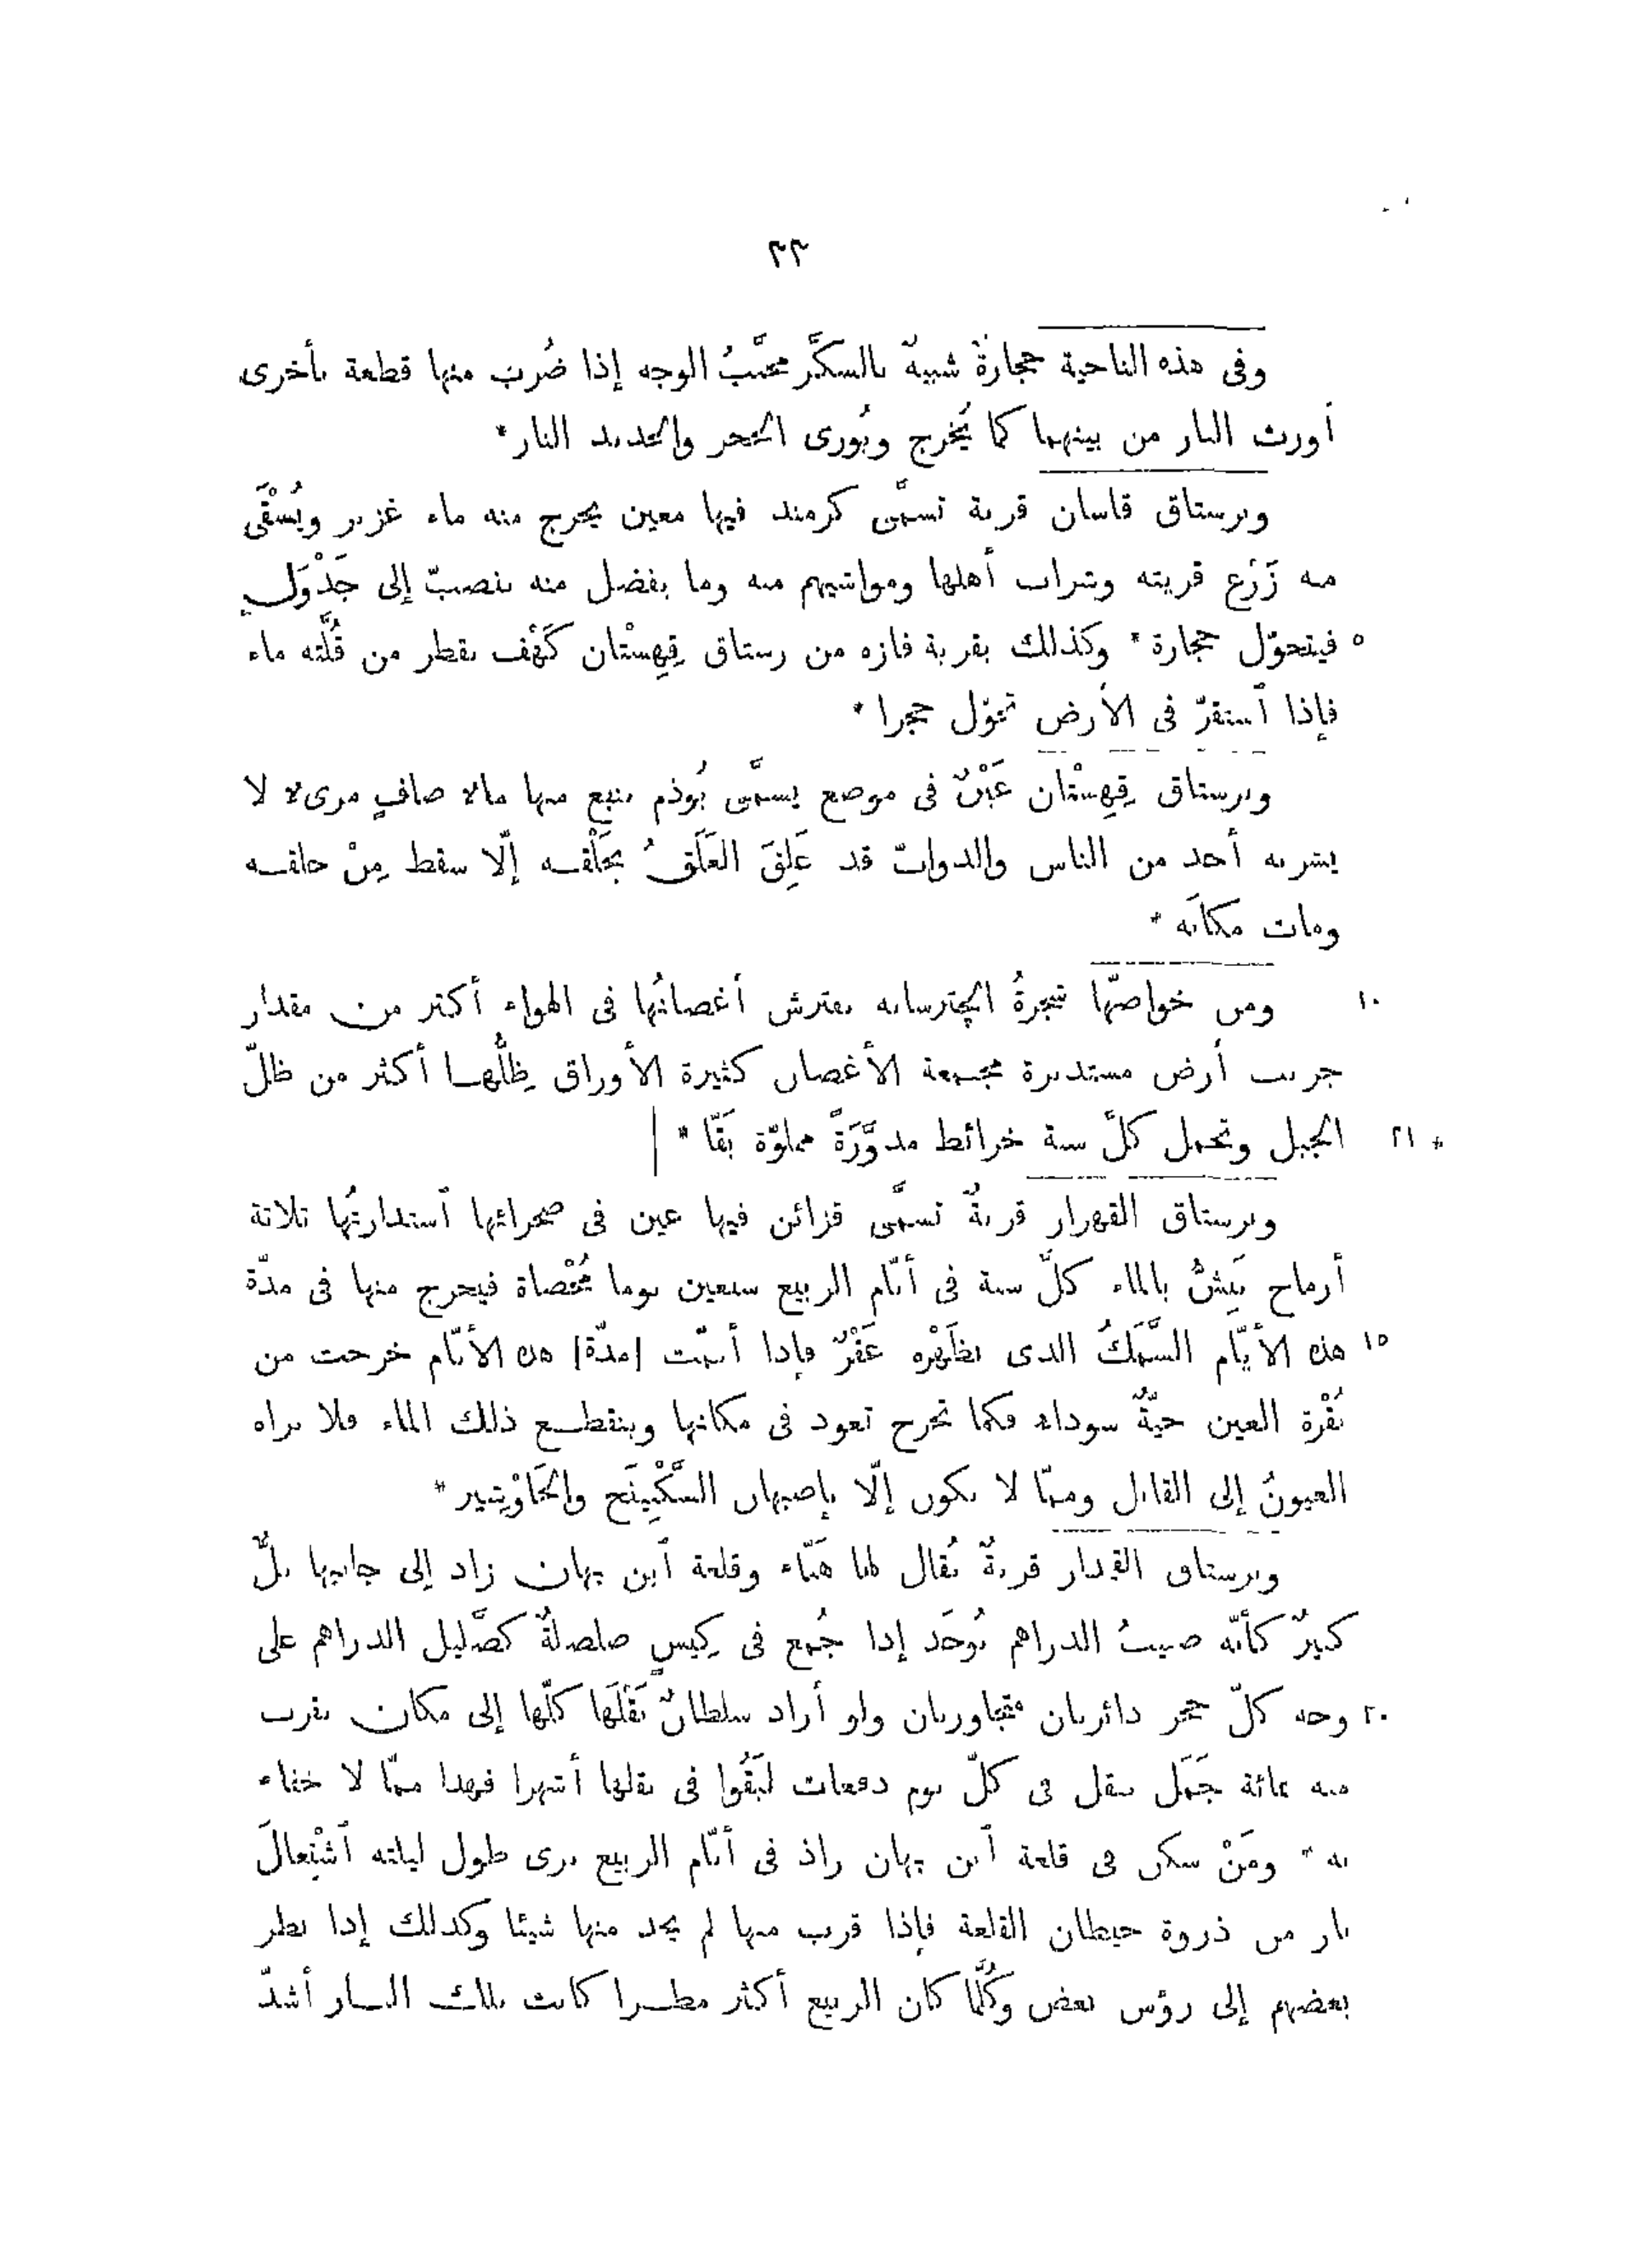 ٣٣
وفى هذه الناحية حجارةٌ شبيهٌ بالسكَّر محبَّبُ الوجه إذا ضُرب منها قطعة بأخرى
أورت النار من بينهما كما يُخرج ويُورى الحجر والحديد النار *
وبرستاق قاسان قرية تسمَّى كرمند فيها معين يخرج منه ماء غزير ويُسْقَى
منه زَرْع قريته وشراب أهلها ومواشيهم منه وما يفضل منه ينصبّ إلى جَدْوَلٍ
٥ فيتحوّل حجارة * وكذلك بقرية فازه من رستاق قِهِسْتان كَهْف يقطر من قُلّته ماء
فإذا ٱستقرّ فى الأرض تحوّل حجرا *
وبرستاق قِهِسْتان عَيْنٌ فى موضع يسمَّى بُوذم ينبع منها مالا صافٍ مرىء لا
يشربه أحد من الناس والدوابّ قد عَلِقَ العَلَقُ بحَلْقه إلّا سقط مِنْ حلقه
ومات مكانَه *
١٠ ومن خواصّها شجرةُ الچترسايه يفترش أغصانُها فى الهواء أكثر من مقدار
جريب أرض مستديرة مجتمعة الأغصان كثيرة الأوراق ظِلُّها أكثر من ظلّ
* ٢١ الجبل وتحمل كلَّ سنة خرائط مدوَّرَةً مملوّة بَقّا * |
وبرستاق القهرار قريةٌ تسمَّى قزائن فيها عين فى صحرائها ٱستدارتُها ثلاثة
أرماح يَنِشُّ بالماء كلَّ سنة فى أيّام الربيع سبعين يوما مُحْصاة فيخرج منها فى مدّة
١٥ هذه الأيّام السَّمَكُ الذى بظَهْره عَقْرٌ فإذا أتمّت [مدّة] هذه الأيّام خرجت من
نُقْرة العين حيّةٌ سوداء فكما تخرج تعود فى مكانها وينقطع ذلك الماء فلا يراه
العيونُ إلى القابل وممّا لا يكون إلّا بإصبهان السَّكْبِينَج والجَاوْشِير *
وبرستاق القهدار قريةٌ يُقال لها هَنّاء وقلعة ٱبن بهان زاد إلى جانبها تلٌّ
كبيرٌ كأنّه صبيبُ الدراهم يُوجَد إذا جُمع فى كِيسٍ صلصلةٌ كصَليل الدراهم على
٢٠ وجه كلّ حجر دائرتان متجاورتان ولو أراد سلطانٌ نَقْلَها كلّها إلى مكان يقرب
منه بمائة جَمَل ينقل فى كلّ يوم دفعات لبَقُوا فى نقلها أشهرا فهذا ممّا لا خفاء
به * ومَنْ سكن فى قلعة ٱبن بهان راذ فى أيّام الربيع يرى طول ليلته ٱشْتِعالَ
نار من ذروة حيطان القلعة فإذا قرب منها لم يجد منها شيئا وكذلك إذا نظر
بعضهم إلى رؤس بعض وكُلَّما كان الربيع أكثر مطرا كانت تلك النار أشدّ